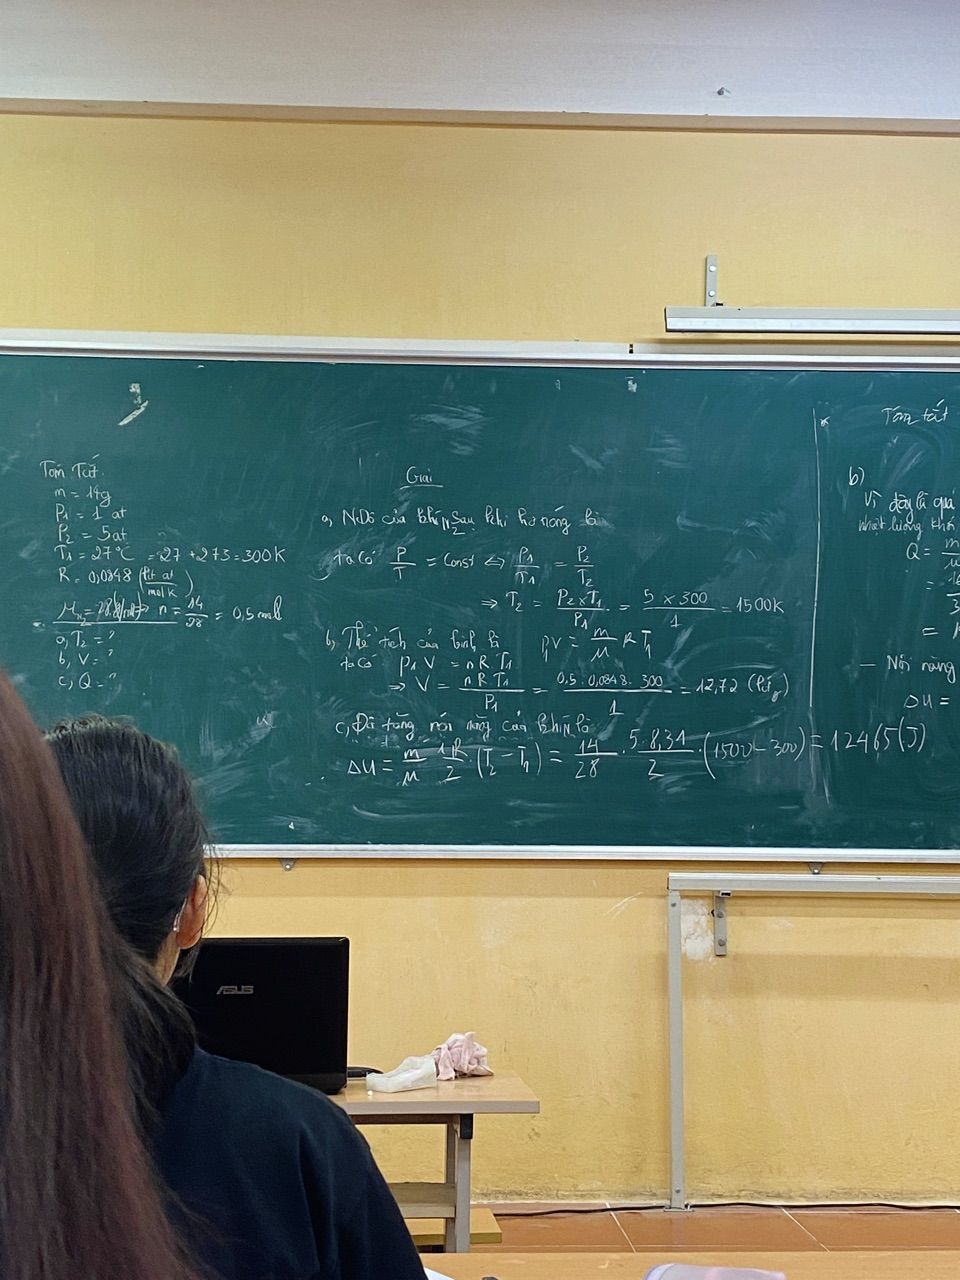 Tóm Tắt.
m = 14g
P1 = 1 at
P2 = 5at
T1 = 27°C = 27 + 273 = 300K
R = 0,0848 (lít at / mol K)
n = 14/28 = 0,5 mol
a, T2 = ?
b, V = ?
c, Q = ?
Giải
a, N.Độ của khí N2 sau khi hơ nóng là
ta có P/T = Const ⇔ P1/T1 = P2/T2
⇒ T2 = P2 x T1 / P1 = 5 x 300 / 1 = 1500K
b, Thể tích của bình là PV = m/μ R T1
ta có P1 V = n R T1
⇒ V = n R T1 / P1 = 0,5 . 0,0848 . 300 / 1 = 12,72 (lít)
c, Độ tăng nội năng của khí là
ΔU = m/μ iR/2 . (T2 - T1) = 14/28 . 5 . 8,31 / 2 . (1500 - 300) = 12465 (J)
Tóm tắt
b)
Vì đây là quá
nhiệt lượng khối
Q =
=
=
— Nội năng
ΔU =
ASUS